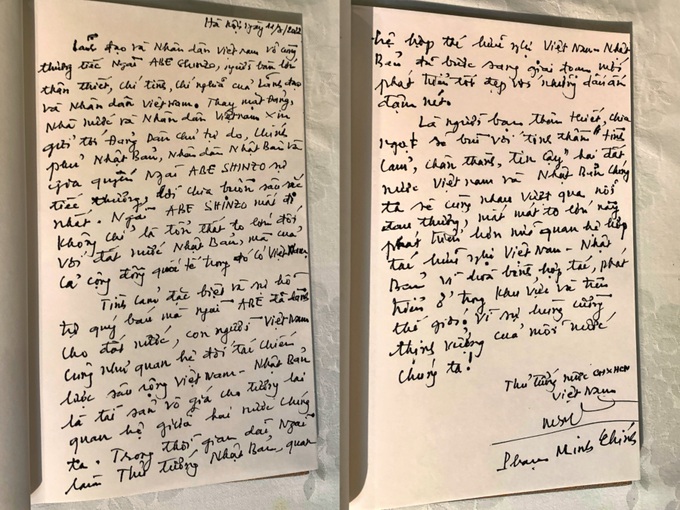 Hà Nội, ngày 11/7/2022
Lãnh đạo và Nhân dân Việt Nam vô cùng
thương tiếc Ngài ABE SHINZO, người bạn lớn
thân thiết, chí tình, chí nghĩa của Lãnh đạo
và Nhân dân Việt Nam. Thay mặt Đảng,
Nhà nước và Nhân dân Việt Nam xin
gửi tới Đảng Dân chủ tự do, Chính
phủ Nhật Bản, Nhân dân Nhật Bản và
gia quyến Ngài ABE SHINZO sự
tiếc thương, lời chia buồn sâu sắc
nhất. Ngài ABE SHINZO mất đi
không chỉ là tổn thất to lớn đối
với đất nước Nhật Bản, mà của
cả cộng đồng quốc tế trong đó có Việt Nam.
Tình cảm đặc biệt và sự hỗ
trợ quý báu mà ngài ABE đã dành
cho đất nước, con người Việt Nam
cũng như quan hệ đối tác chiến
lược sâu rộng Việt Nam - Nhật Bản
là tài sản vô giá cho tương lai
quan hệ giữa hai nước chúng
ta. Trong thời gian dài Ngài
làm Thủ tướng Nhật Bản, quan
hệ hợp tác hữu nghị Việt Nam - Nhật
Bản đã bước sang giai đoạn mới
phát triển tốt đẹp với những dấu ấn
đậm nét.
Là người bạn thân thiết, chia
ngọt sẻ bùi với tinh thần "tình
cảm, chân thành, tin cậy" hai đất
nước Việt Nam và Nhật Bản chúng
ta sẽ cùng nhau vượt qua nỗi
đau thương, mất mát to lớn này
phát triển hơn nữa quan hệ hợp
tác hữu nghị Việt Nam - Nhật
Bản vì hoà bình hợp tác, phát
triển ở trong khu vực và trên
thế giới; vì sự hùng cường
thịnh vượng của mỗi nước
chúng ta!
Thủ tướng nước CHXHCN
Việt Nam
Phạm Minh Chính